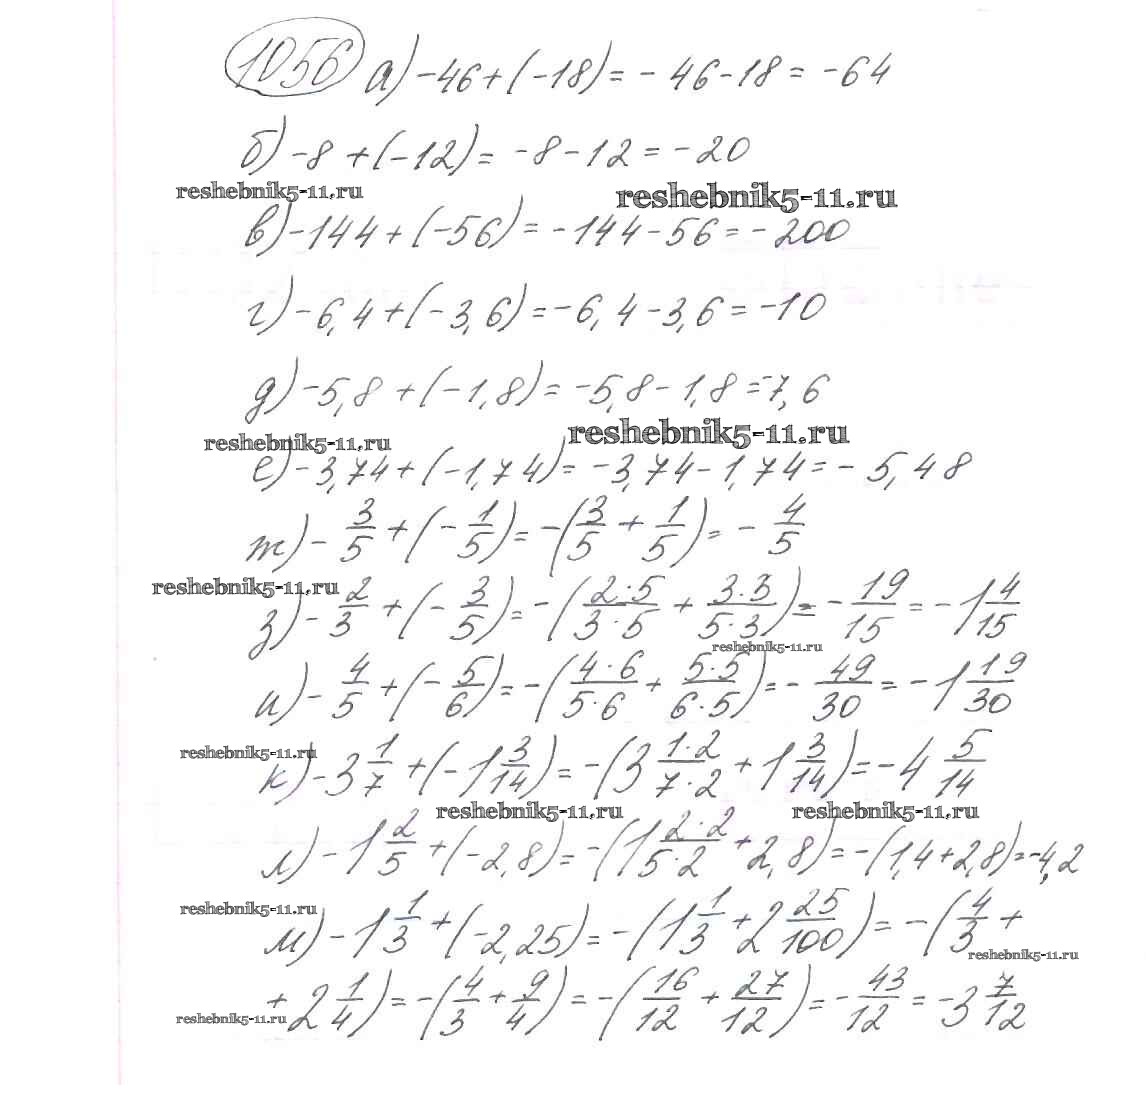 1056 а) -46+(-18)= - 46-18= -64
б) -8 +(-12)= -8-12 = -20
reshebnik5-11.ru reshebnik5-11.ru
в) -144+(-56)= -144-56= -200
г) -6,4+(-3,6)= -6,4-3,6= -10
д) -5,8 +(-1,8)= -5,8-1,8=-7,6
reshebnik5-11.ru reshebnik5-11.ru
е) -3,74+(-1,74)= -3,74-1,74= - 5,48
ж) - 3/5 +(- 1/5)= -(3/5 + 1/5)= - 4/5
reshebnik5-11.ru
з) - 2/3 +(- 3/5)= -(2·5/3·5 + 3·3/5·3)= - 19/15 = -1 4/15
reshebnik5-11.ru
и) - 4/5 +(- 5/6)= -(4·6/5·6 + 5·5/6·5)= - 49/30 = -1 19/30
reshebnik5-11.ru
к) -3 1/7 +(-1 3/14)= -(3 1·2/7·2 + 1 3/14)= -4 5/14
reshebnik5-11.ru reshebnik5-11.ru
л) -1 2/5 +(-2,8)= -(1 2·2/5·2 + 2,8)= -(1,4+2,8)=-4,2
reshebnik5-11.ru
м) -1 1/3 +(-2,25)= -(1 1/3 +2 25/100)= -(4/3 +
reshebnik5-11.ru
+ 2 1/4)= -(4/3 + 9/4)= -(16/12 + 27/12)= - 43/12 = -3 7/12
reshebnik5-11.ru